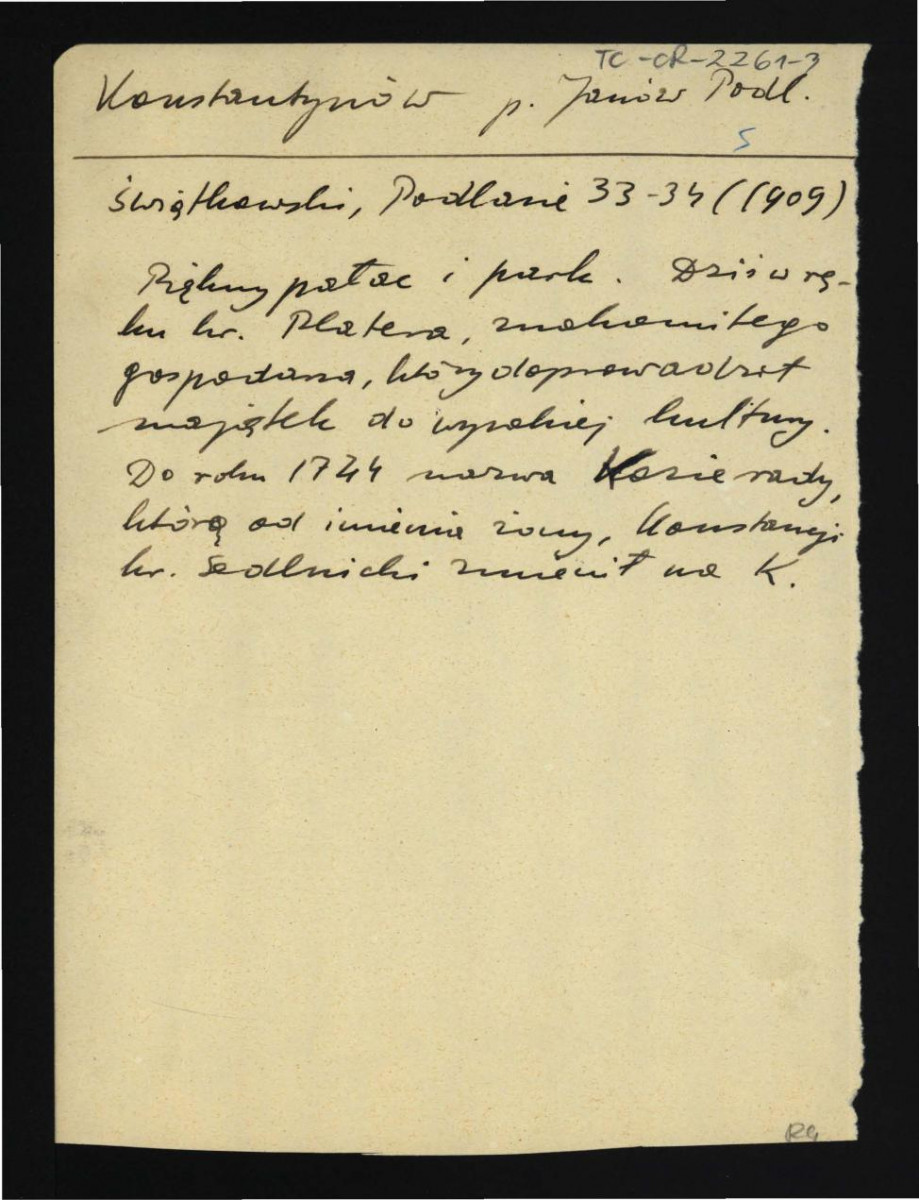 TC-OR-2261-3
Konstantynów p. Janów Podl.
5
Świątkowski, Podlasie 33-34 (1909)
Piękny pałac i park. Dziś w rę-
ku hr. Platera, znakomitego
gospodarza, który doprowadził
majątek do wysokiej kultury.
Do roku 1744 nazwa Kozierady,
którą od imienia żony, Konstancji
hr. Sedlnicki zmienił na K.